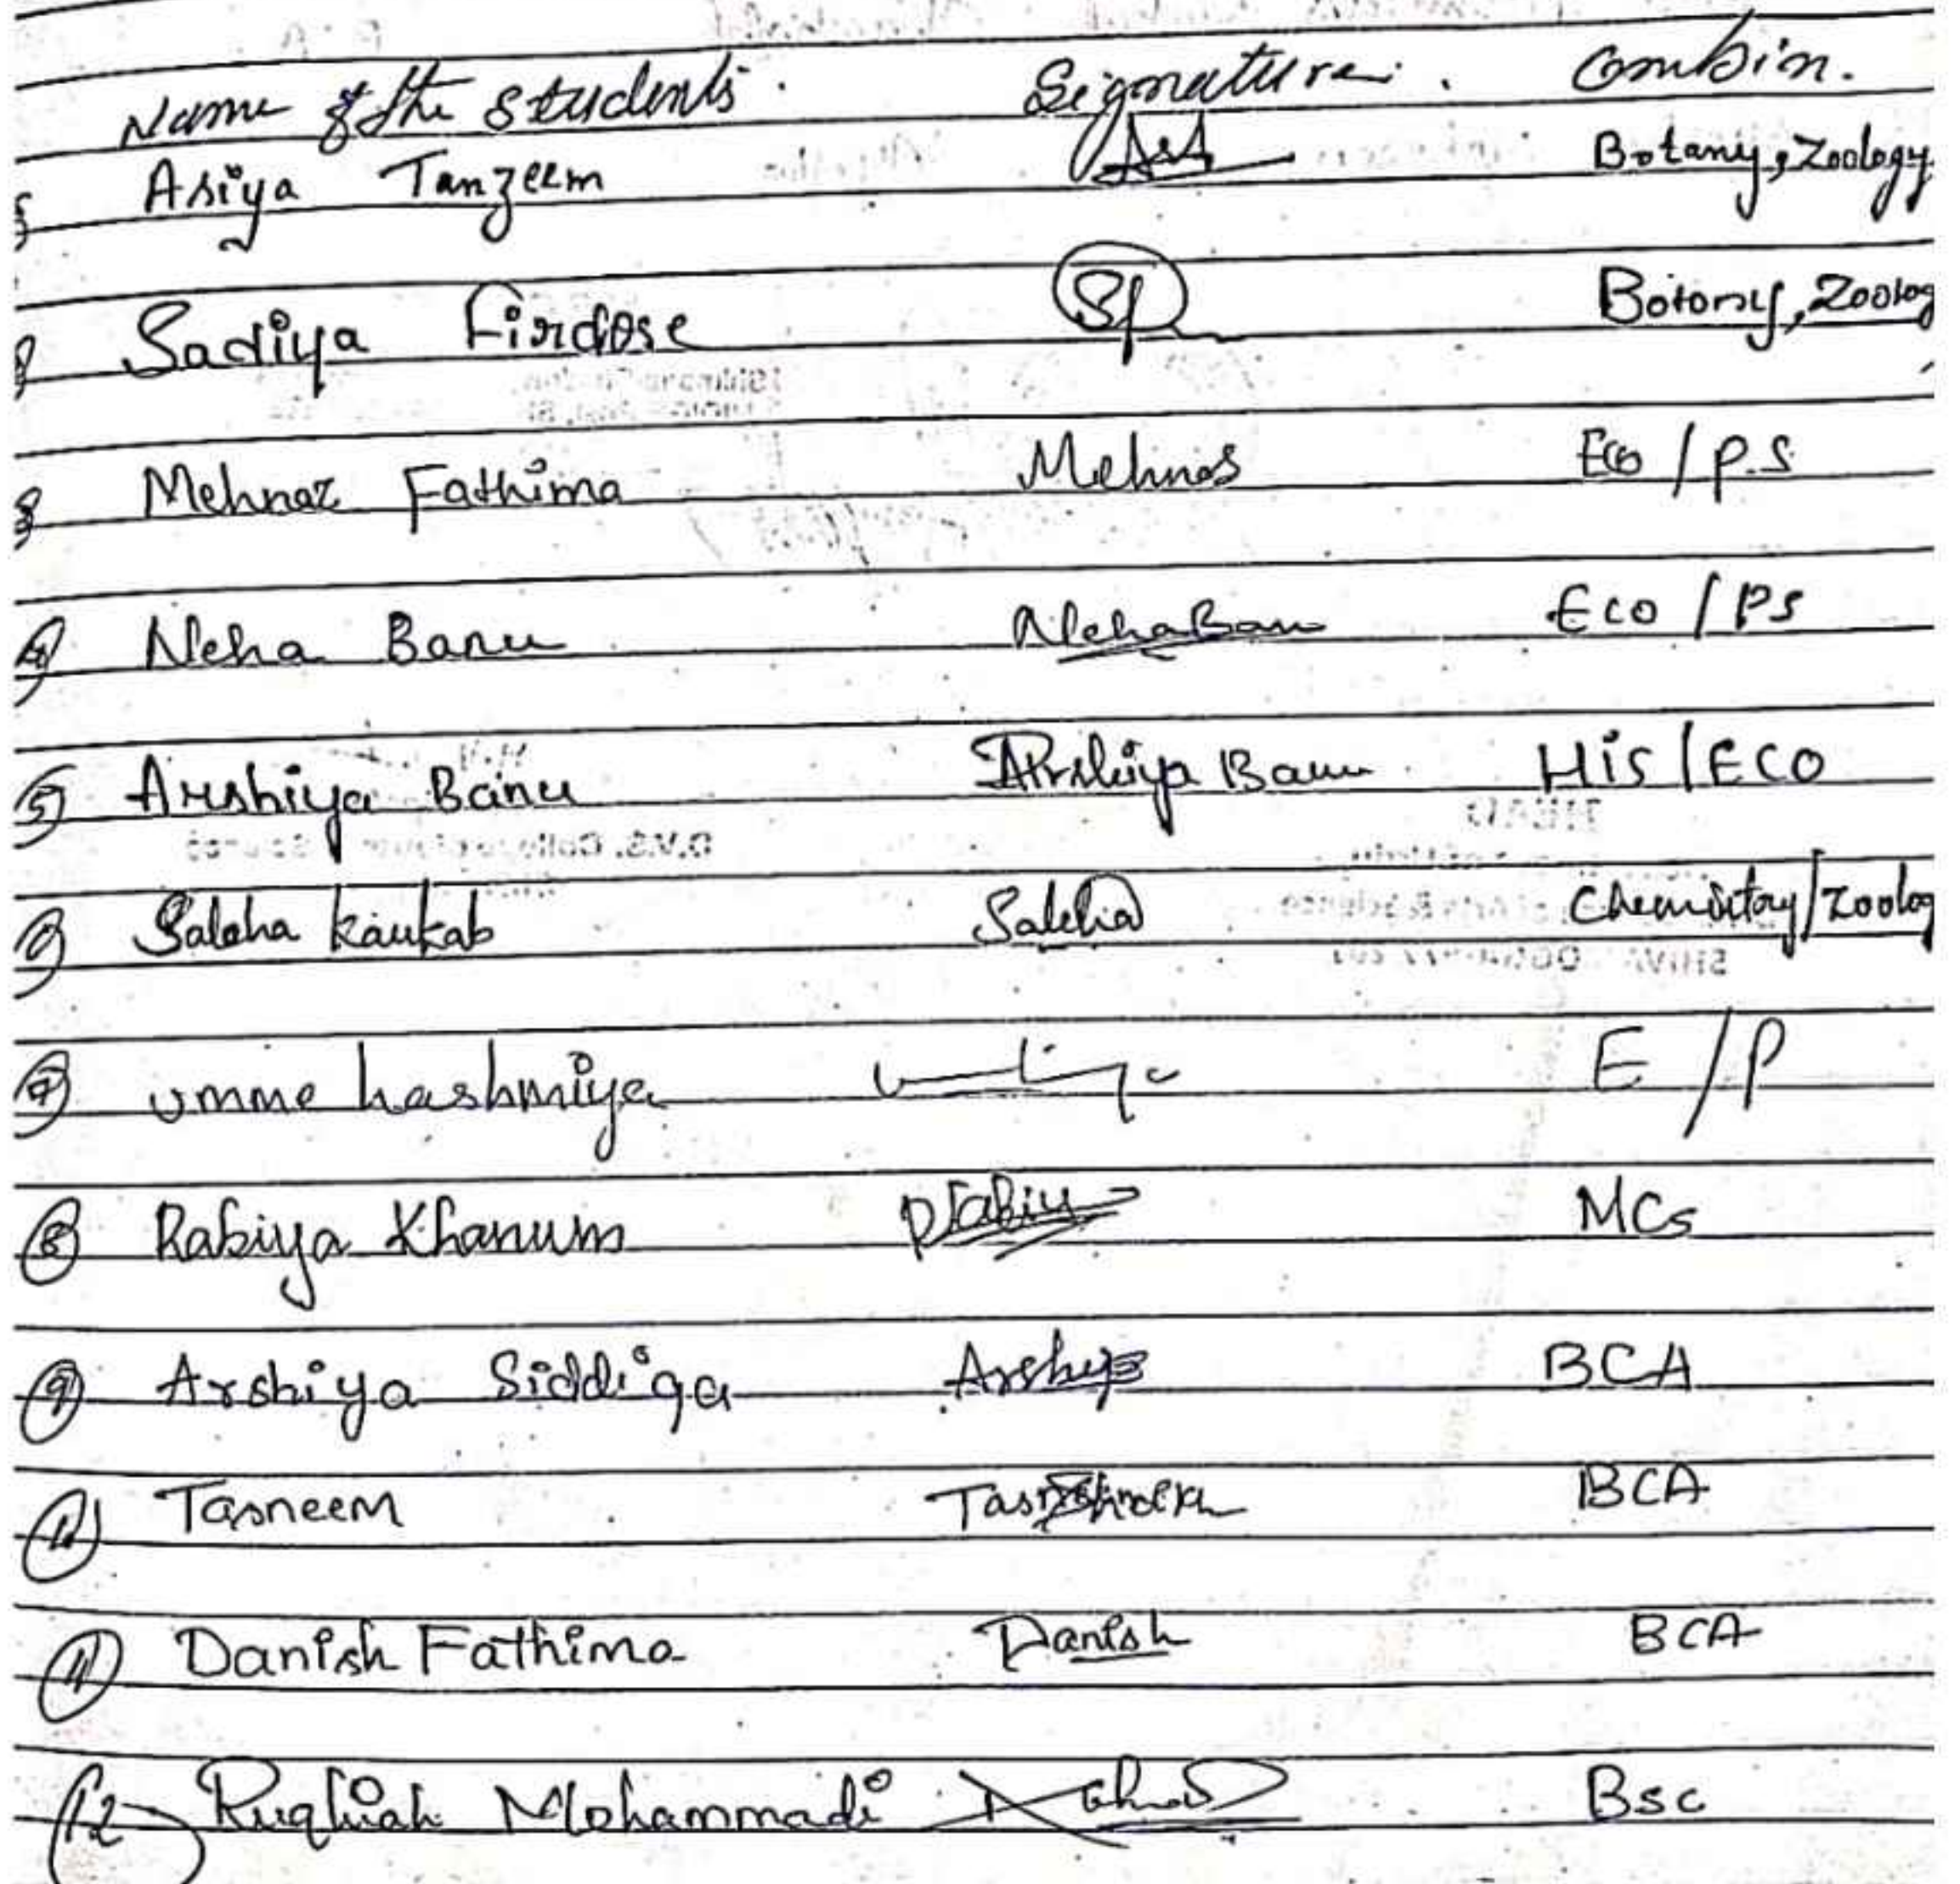 Name of the students. Signature. Combin.
Asiya Tanzeem Botany, Zoology
Sadiya Firdose SF Botony, Zoolog
Mehnaz Fathima Mehnas Eco / P.S
4 Neha Banu Neha Banu Eco / PS
5 Arshiya Banu Arshiya Banu His / ECO
6 Saleha Kaukab Saleha Chemistry / Zoolog
7 umme hashmiya E / P
8 Rabiya Khanum Rabiy MCs
9 Arshiya Siddiqa Arshiya BCA
Tasneem BCA
11 Danish Fathima Danish BCA
12 Ruqhiah Mohammadi Bsc